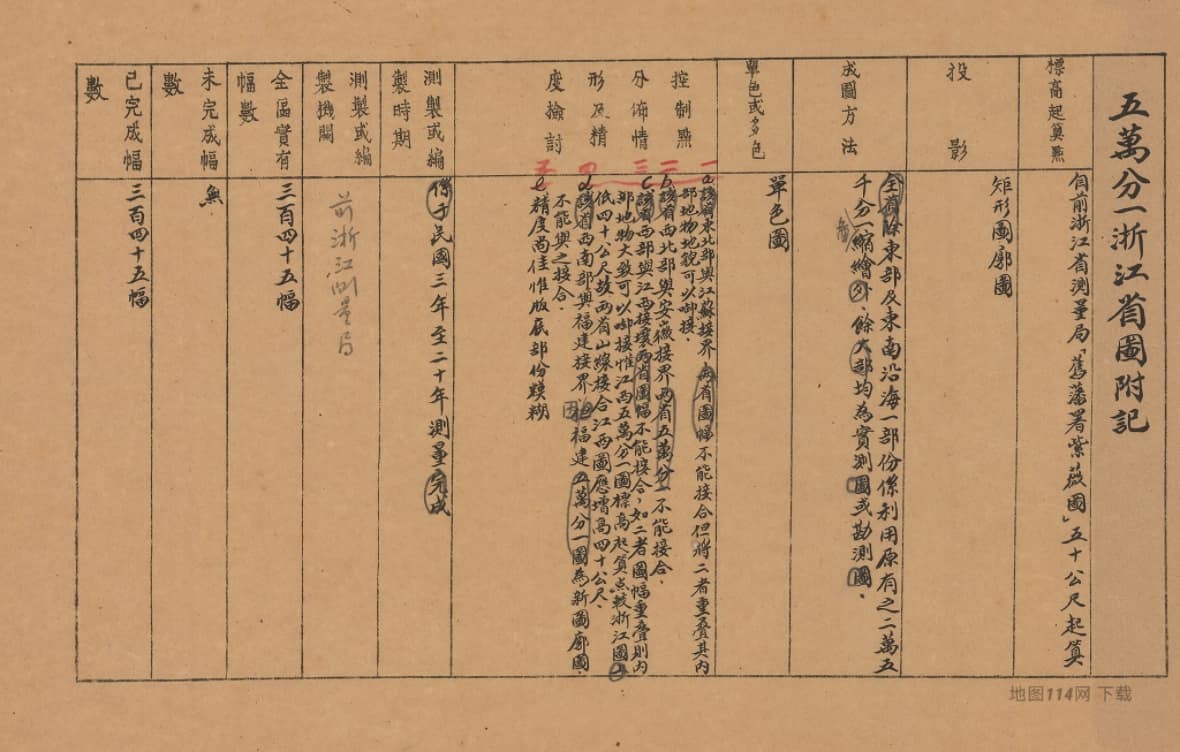 五萬分一浙江省圖附記
標高起算點
自前浙江省測量局「舊藩署紫薇園」五十公尺起算
投影
矩形圖廓圖
成圖方法
全省除東部及東南沿海一部份係利用原有之二萬五
千分一縮繪外、餘大部均為實測圖或勘測圖、
單色或多色
單色圖
控制點
分佈情
形及精
度檢討
一 二 三 四 五
a 該省東北部與江蘇接界兩省圖幅不能接合但將二者重叠其內
部地物地貌可以啣接、
b 該省西北部與安徽接界兩省五萬分一不能接合、
c 該省西部與江西接壤兩省圖幅不能接合，如二者圖幅重叠則內
部地物大致可以啣接惟江西五萬分一圖標高起算点較浙江圖
低四十公尺故兩省山線接合江西圖應增高四十公尺、
d 該省西南部與福建接界因福建五萬分一圖為新圖廓圖、
不能與之接合、
e 精度尚佳惟版底部份模糊
測製或編
製時期
係于民國三年至二十年測量完成
測製或編
製機関
前浙江測量局
全區實有
幅數
三百四十五幅
未完成幅
數
無、
已完成幅
數
三百四十五幅
地图114网 下载